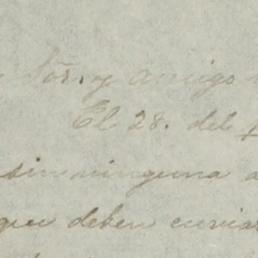 Sõr. y amigo
El 28. del
sin ninguna
que deben enviar